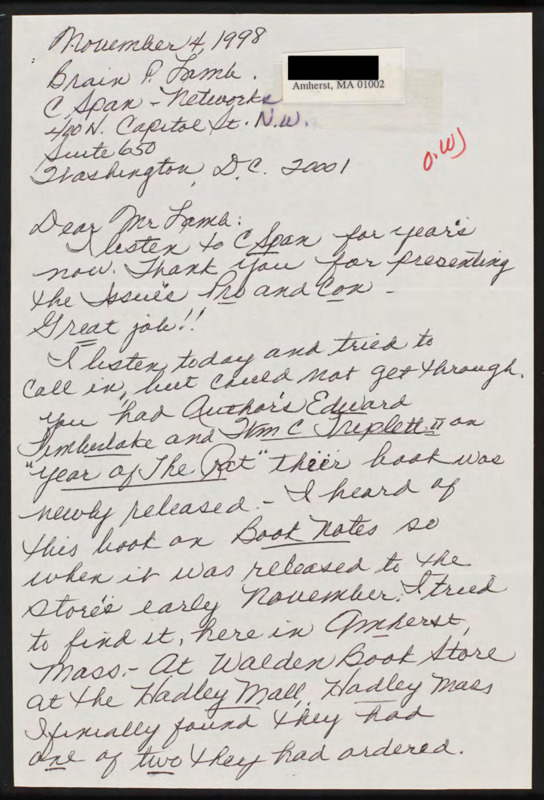 November 4, 1998
Brain P. Lamb.
C, Span - Networks
400 N. Capitol St. N.W.
Suite 650
Washington, D.C. 20001
Amherst, MA 01002
Dear Mr Lamb:
I listen to C Span for year's
now. Thank you for presenting
the Issue's Pro and Con -
Great job!!
I listen, today and tried to
Call in, but could not get through.
you had Author's Edward
Timberlake and Wm C Triplett II on
"Year of The Rat" their book was
newly released. - I heard of
this book on Book Notes so
when it was released to the
store's early November. I tried
to find it, here in Amherst,
Mass. - At Walden Book Store
at the Hadley Mall, Hadley Mass
I finially found they had
one of two they had ordered.